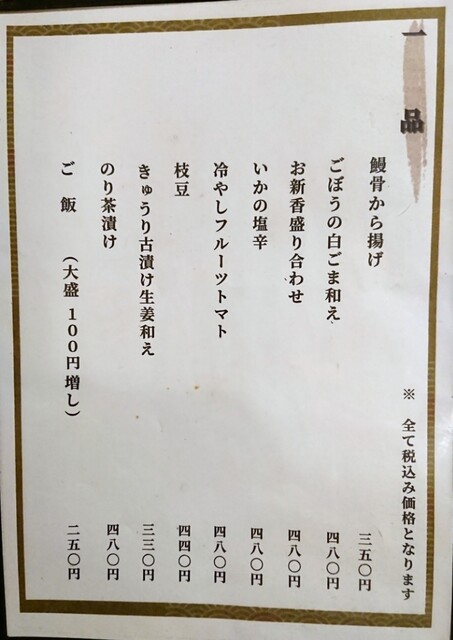 一品
※ 全て税込み価格となります
鰻骨から揚げ 三五〇円
ごぼうの白ごま和え 四八〇円
お新香盛り合わせ 四八〇円
いかの塩辛 四八〇円
冷やしフルーツトマト 四八〇円
枝豆 四四〇円
きゅうり古漬け生姜和え 三三〇円
のり茶漬け 四八〇円
ご飯 (大盛 100円増し) 二五〇円